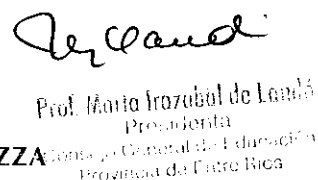 Prof. María Irazabal de Landó
Presidenta
ZZA Consejo General de Educación
Provincia de Entre Ríos